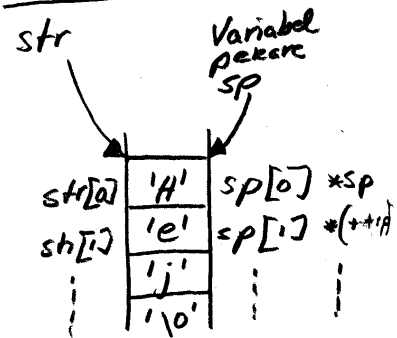 str
Variabel
pekare
sp
str[0] 'H' sp[0] *sp
str[1] 'e' sp[1]
'j'
'\0'